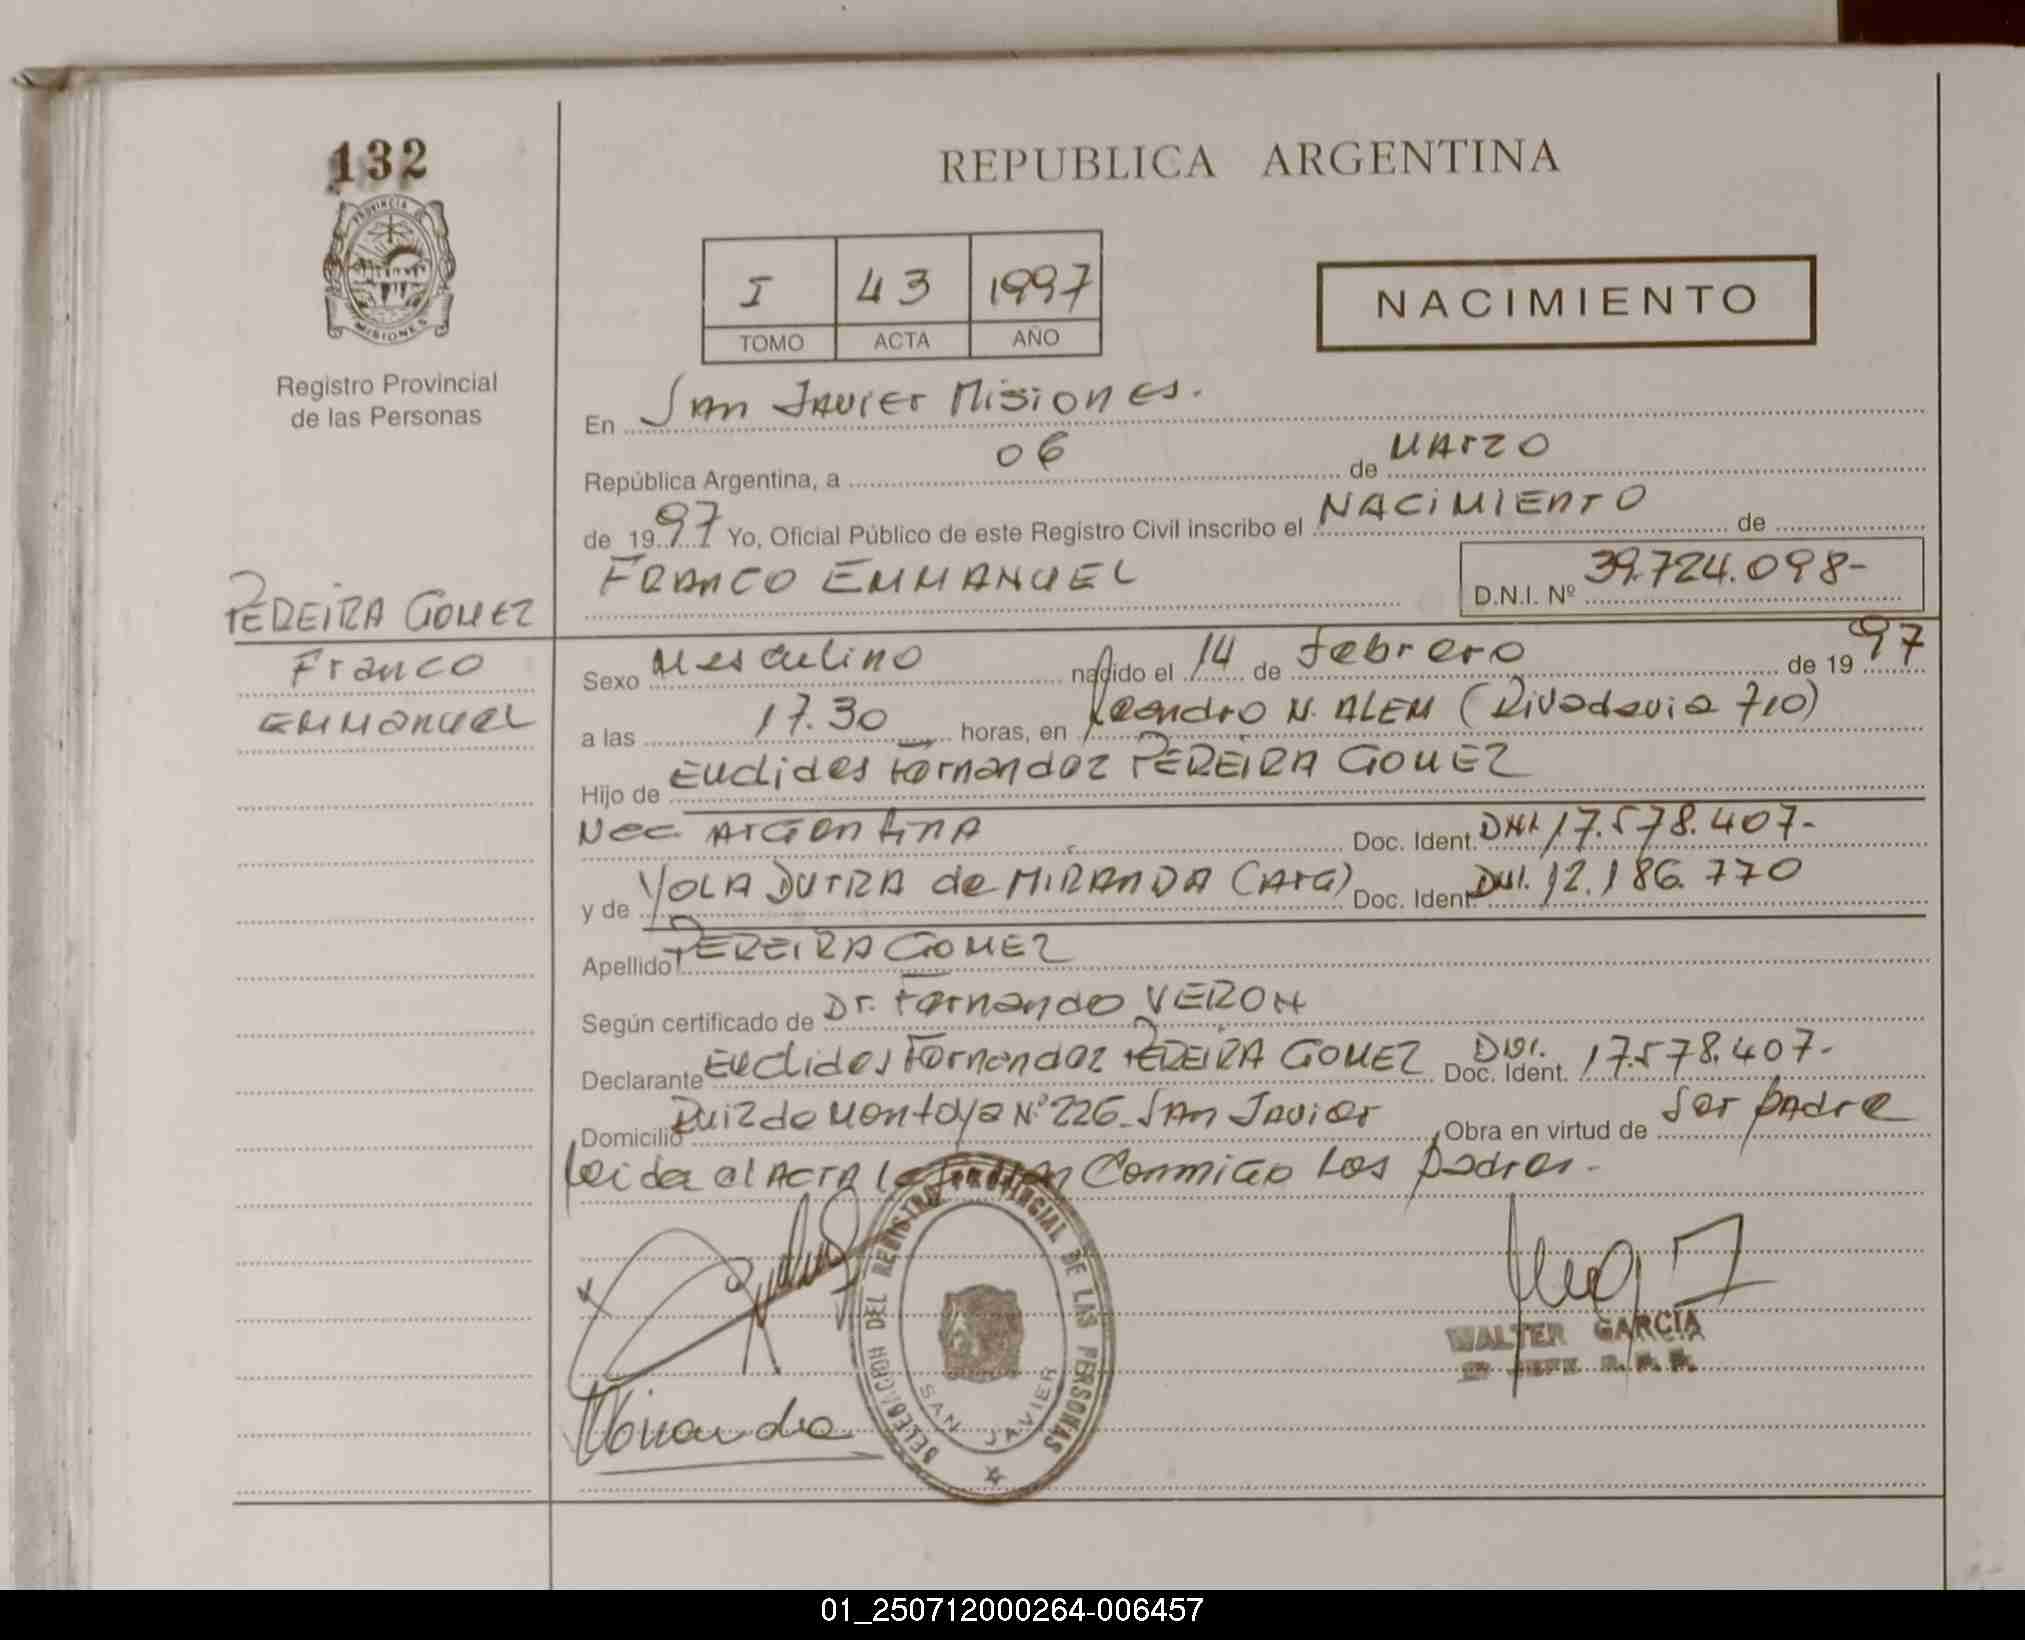 132
PROVINCIA DE
MISIONES
Registro Provincial
de las Personas
REPUBLICA ARGENTINA
I 43 1997
TOMO ACTA AÑO
NACIMIENTO
En San Javier Misiones.
República Argentina, a 06 de Marzo
de 1997 Yo, Oficial Público de este Registro Civil inscribo el NACIMIENTO de
FRANCO EMMANUEL D.N.I. Nº 39.724.098-
PEREIRA GOMEZ
Franco
Emmanuel
Sexo Masculino nacido el 14 de Febrero de 1997
a las 17.30 horas, en Leandro N. ALEM (Rivadavia 710)
Hijo de Euclides Fernandez PEREIRA GOMEZ
Nac. Argentina Doc. Ident. DNI. 17.578.407-
y de YOLA DUTRA de MIRANDA (Arg) Doc. Ident. DNI. 12.186.770
Apellido PEREIRA GOMEZ
Según certificado de Dr. Fernando VERON
Declarante Euclides Fernandez PEREIRA GOMEZ Doc. Ident. DNI. 17.578.407-
Domicilio Ruiz de Montoya Nº 226_ San Javier Obra en virtud de Ser padre
Leida el Acta la firman Conmigo Los padres.-
DELEGACION DEL REGISTRO PROVINCIAL DE LAS PERSONAS
SAN JAVIER
Miranda
WALTER GARCIA
JEFE R. P. P.
01_250712000264-006457